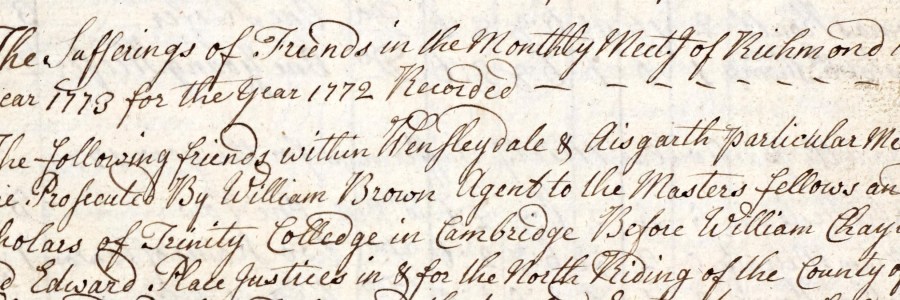 The Sufferings of Friends in the Monthly Meet.g of Richmond
ear 1773 for the Year 1772 Recorded — — — — — — —
The following friends within Wensleydale & Aisgarth particular Me
Prosecuted By William Brown Agent to the Masters fellows an
holars of Trinity Colledge in Cambridge Before William Chay
d Edward Place Justices in & for the North Riding of the County of